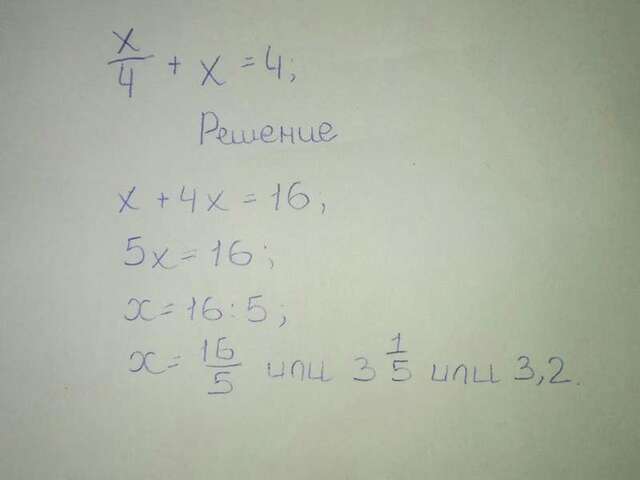 x/4 + x = 4;
Решение
x + 4x = 16;
5x = 16;
x = 16 : 5;
x = 16/5 или 3 1/5 или 3,2.